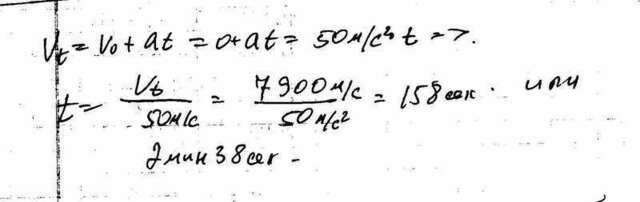 Vt = V0 + at = 0 + at = 50 м/с² t =>.
t = Vt / 50 м/с = 7900 м/с / 50 м/с² = 158 сек. или
2 мин 38 сек -